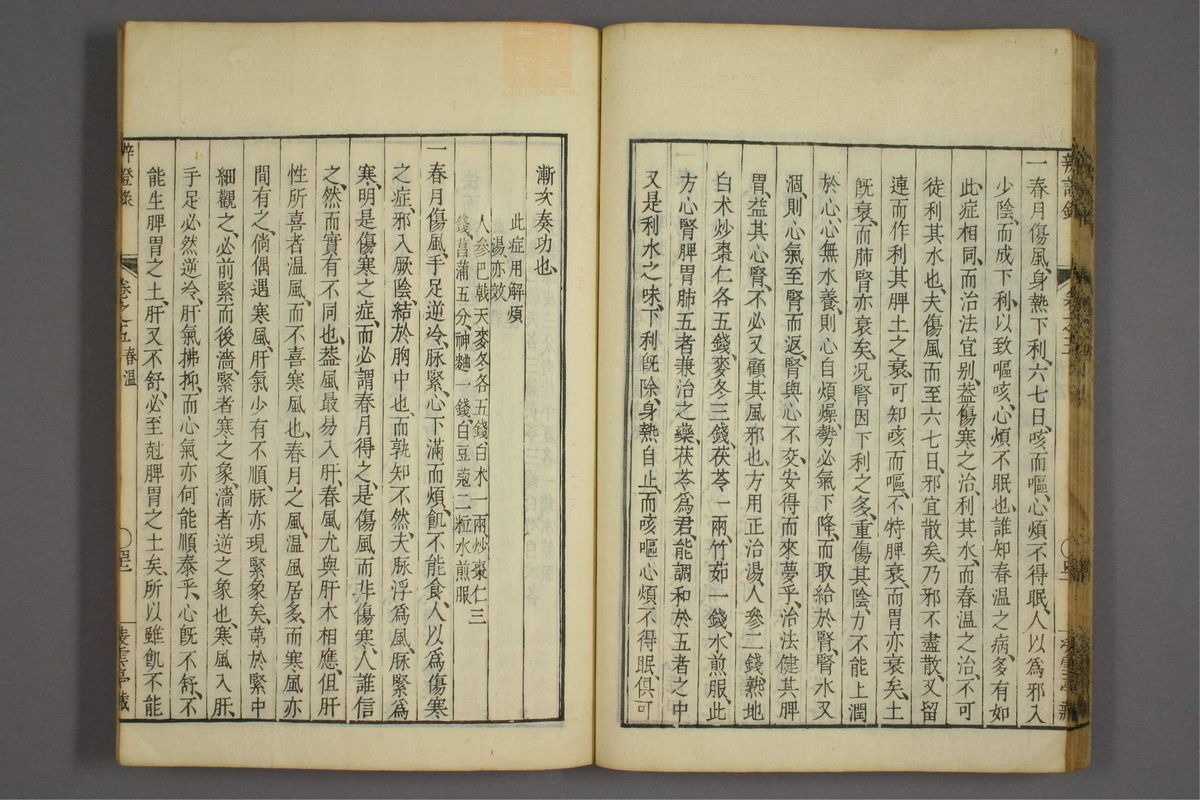 一春月傷風、身熱下利、六七日、咳而嘔、心煩不得眠、人以爲邪入
少陰、而成下利、以致嘔咳、心煩不眠也、誰知春温之病、多有如
此症相同、而治法宜别、葢傷寒之治、利其水、而春温之治、不可
徒利其水也、夫傷風而至六七日、邪宜散矣、乃邪不盡散、又留
連而作利、其脾土之衰、可知、咳而嘔、不特脾衰、而胃亦衰矣、土
旣衰、而肺腎亦衰矣、况腎因下利之多、重傷其陰、力不能上潤
於心、心無水養、則心自煩燥、勢必氣下降、而取給於腎、腎水又
涸、則心氣至腎而返、腎與心不交、安得而來夢乎、治法健其脾
胃、益其心腎、不必又顧其風邪也、方用正治湯、人參二錢、熟地
白术炒棗仁各五錢、麥冬三錢、茯苓一兩、竹茹一錢、水煎服、此
方心腎脾胃肺五者兼治之藥、茯苓爲君、能調和於五者之中
又是利水之味、下利旣除、身熱自止、而咳嘔心煩不得眠、俱可
漸次奏功也、
此症用解煩
湯亦效
人參巴戟天麥冬各五錢白术一兩炒棗仁三
錢菖蒲五分、神麯一錢、白豆蔻二粒水煎服
一春月傷風、手足逆冷、脉緊、心下滿而煩、飢不能食、人以爲傷寒
之症、邪入厥陰、結於胸中也、而孰知不然、夫脉浮爲風、脉緊爲
寒、明是傷寒之症、而必謂春月得之、是傷風而非傷寒、人誰信
之、然而實有不同也、葢風最易入肝、春風尤與肝木相應、但肝
性所喜者温風、而不喜寒風也、春月之風、温風居多、而寒風亦
間有之、倘偶遇寒風、肝氣少有不順、脉亦現緊象矣、第於緊中
細觀之、必前緊而後濇、緊者寒之象、濇者逆之象也、寒風入肝、
手足必然逆冷、肝氣拂抑、而心氣亦何能順泰乎、心旣不舒、不
能生脾胃之土、肝又不舒、必至尅脾胃之土矣、所以雖飢不能
卷之五 春温